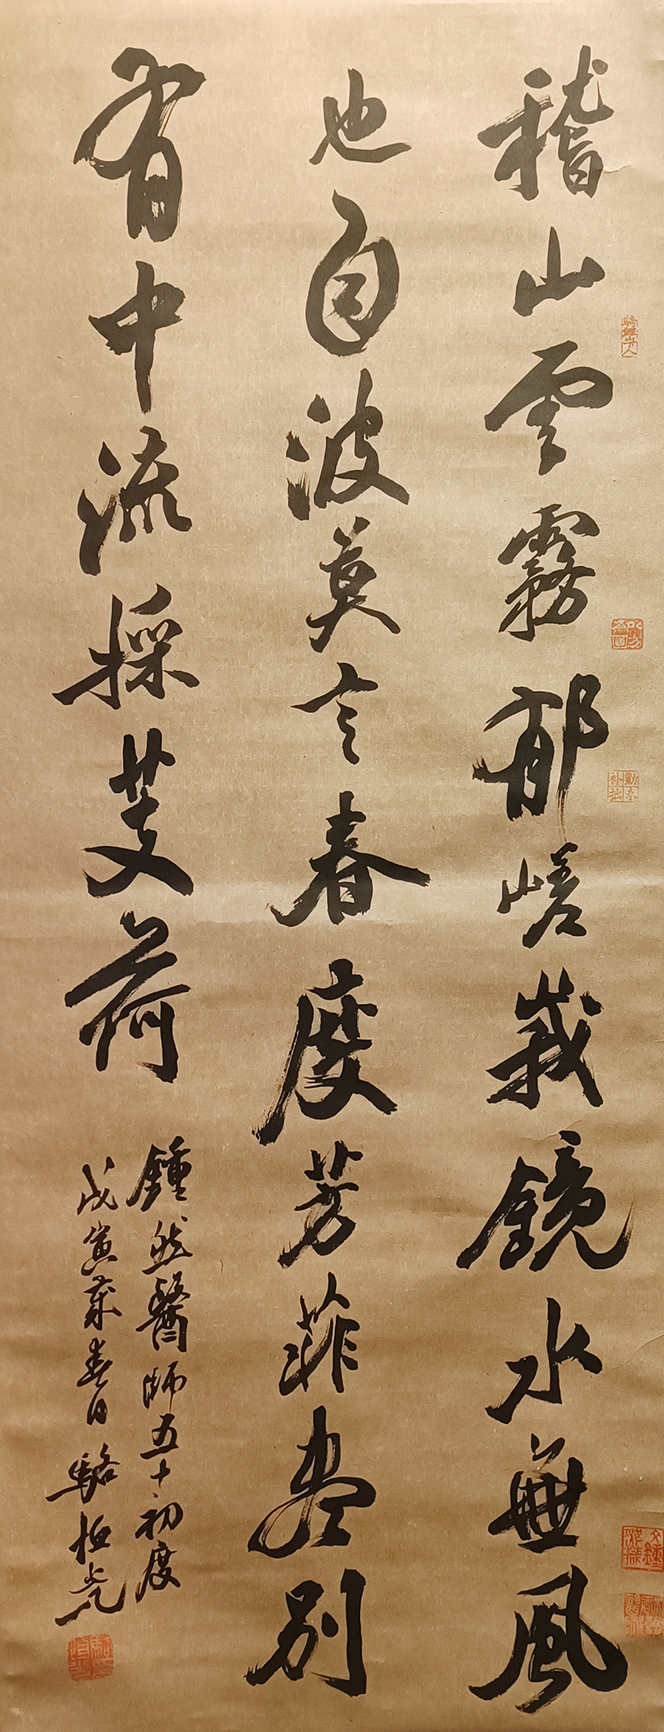 稽山雲霧郁嵯峩鏡水無風
也自波莫言春度芳菲盡別
有中流採芰荷
鍾然醫師五十初度
戊寅年春日駱恒光